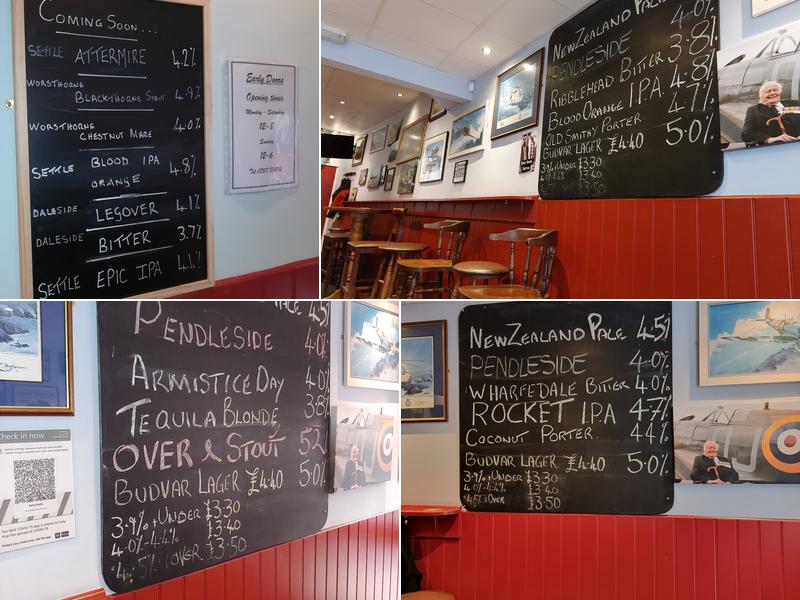 COMING SOON...
SETTLE ATTERMIRE 4.2%
WORSTHORNE
BLACKTHORNE STOUT 4.9%
WORSTHORNE 4.0%
CHESTNUT MARE
SETTLE BLOOD IPA 4.8%
ORANGE
DALESIDE LEGOVER 4.1%
DALESIDE BITTER 3.7%
SETTLE EPIC IPA
Early Doors
Opening times
Monday - Saturday
12-8
Sunday
12-6
NEWZEALAND PALE
PENDLESIDE 4.0%
RIBBLEHEAD BITTER 3.8%
BLOOD ORANGE I.P.A. 4.8%
OLD SMITHY PORTER 4.7%
BUDVAR LAGER £4.40 5.0%
3.9% & UNDER £3.30
£3.40
£3.50
PALE 4.5%
PENDLESIDE 4.0%
ARMISTICE DAY 4.0%
TEQUILA BLONDE 3.8%
OVER & STOUT 5.2
BUDVAR LAGER £4.40 5.0%
3.9% & UNDER £3.30
4.0%-4.4% £3.40
4.5% & OVER £3.50
Check in now
NEWZEALAND PALE 4.5%
PENDLESIDE 4.0%
WHARFEDALE BITTER 4.0%
ROCKET I.P.A 4.7%
COCONUT PORTER 4.4%
BUDVAR LAGER £4.40 5.0%
3.9% & UNDER £3.30
4.0%-4.4% £3.40
4.5% & OVER £3.50